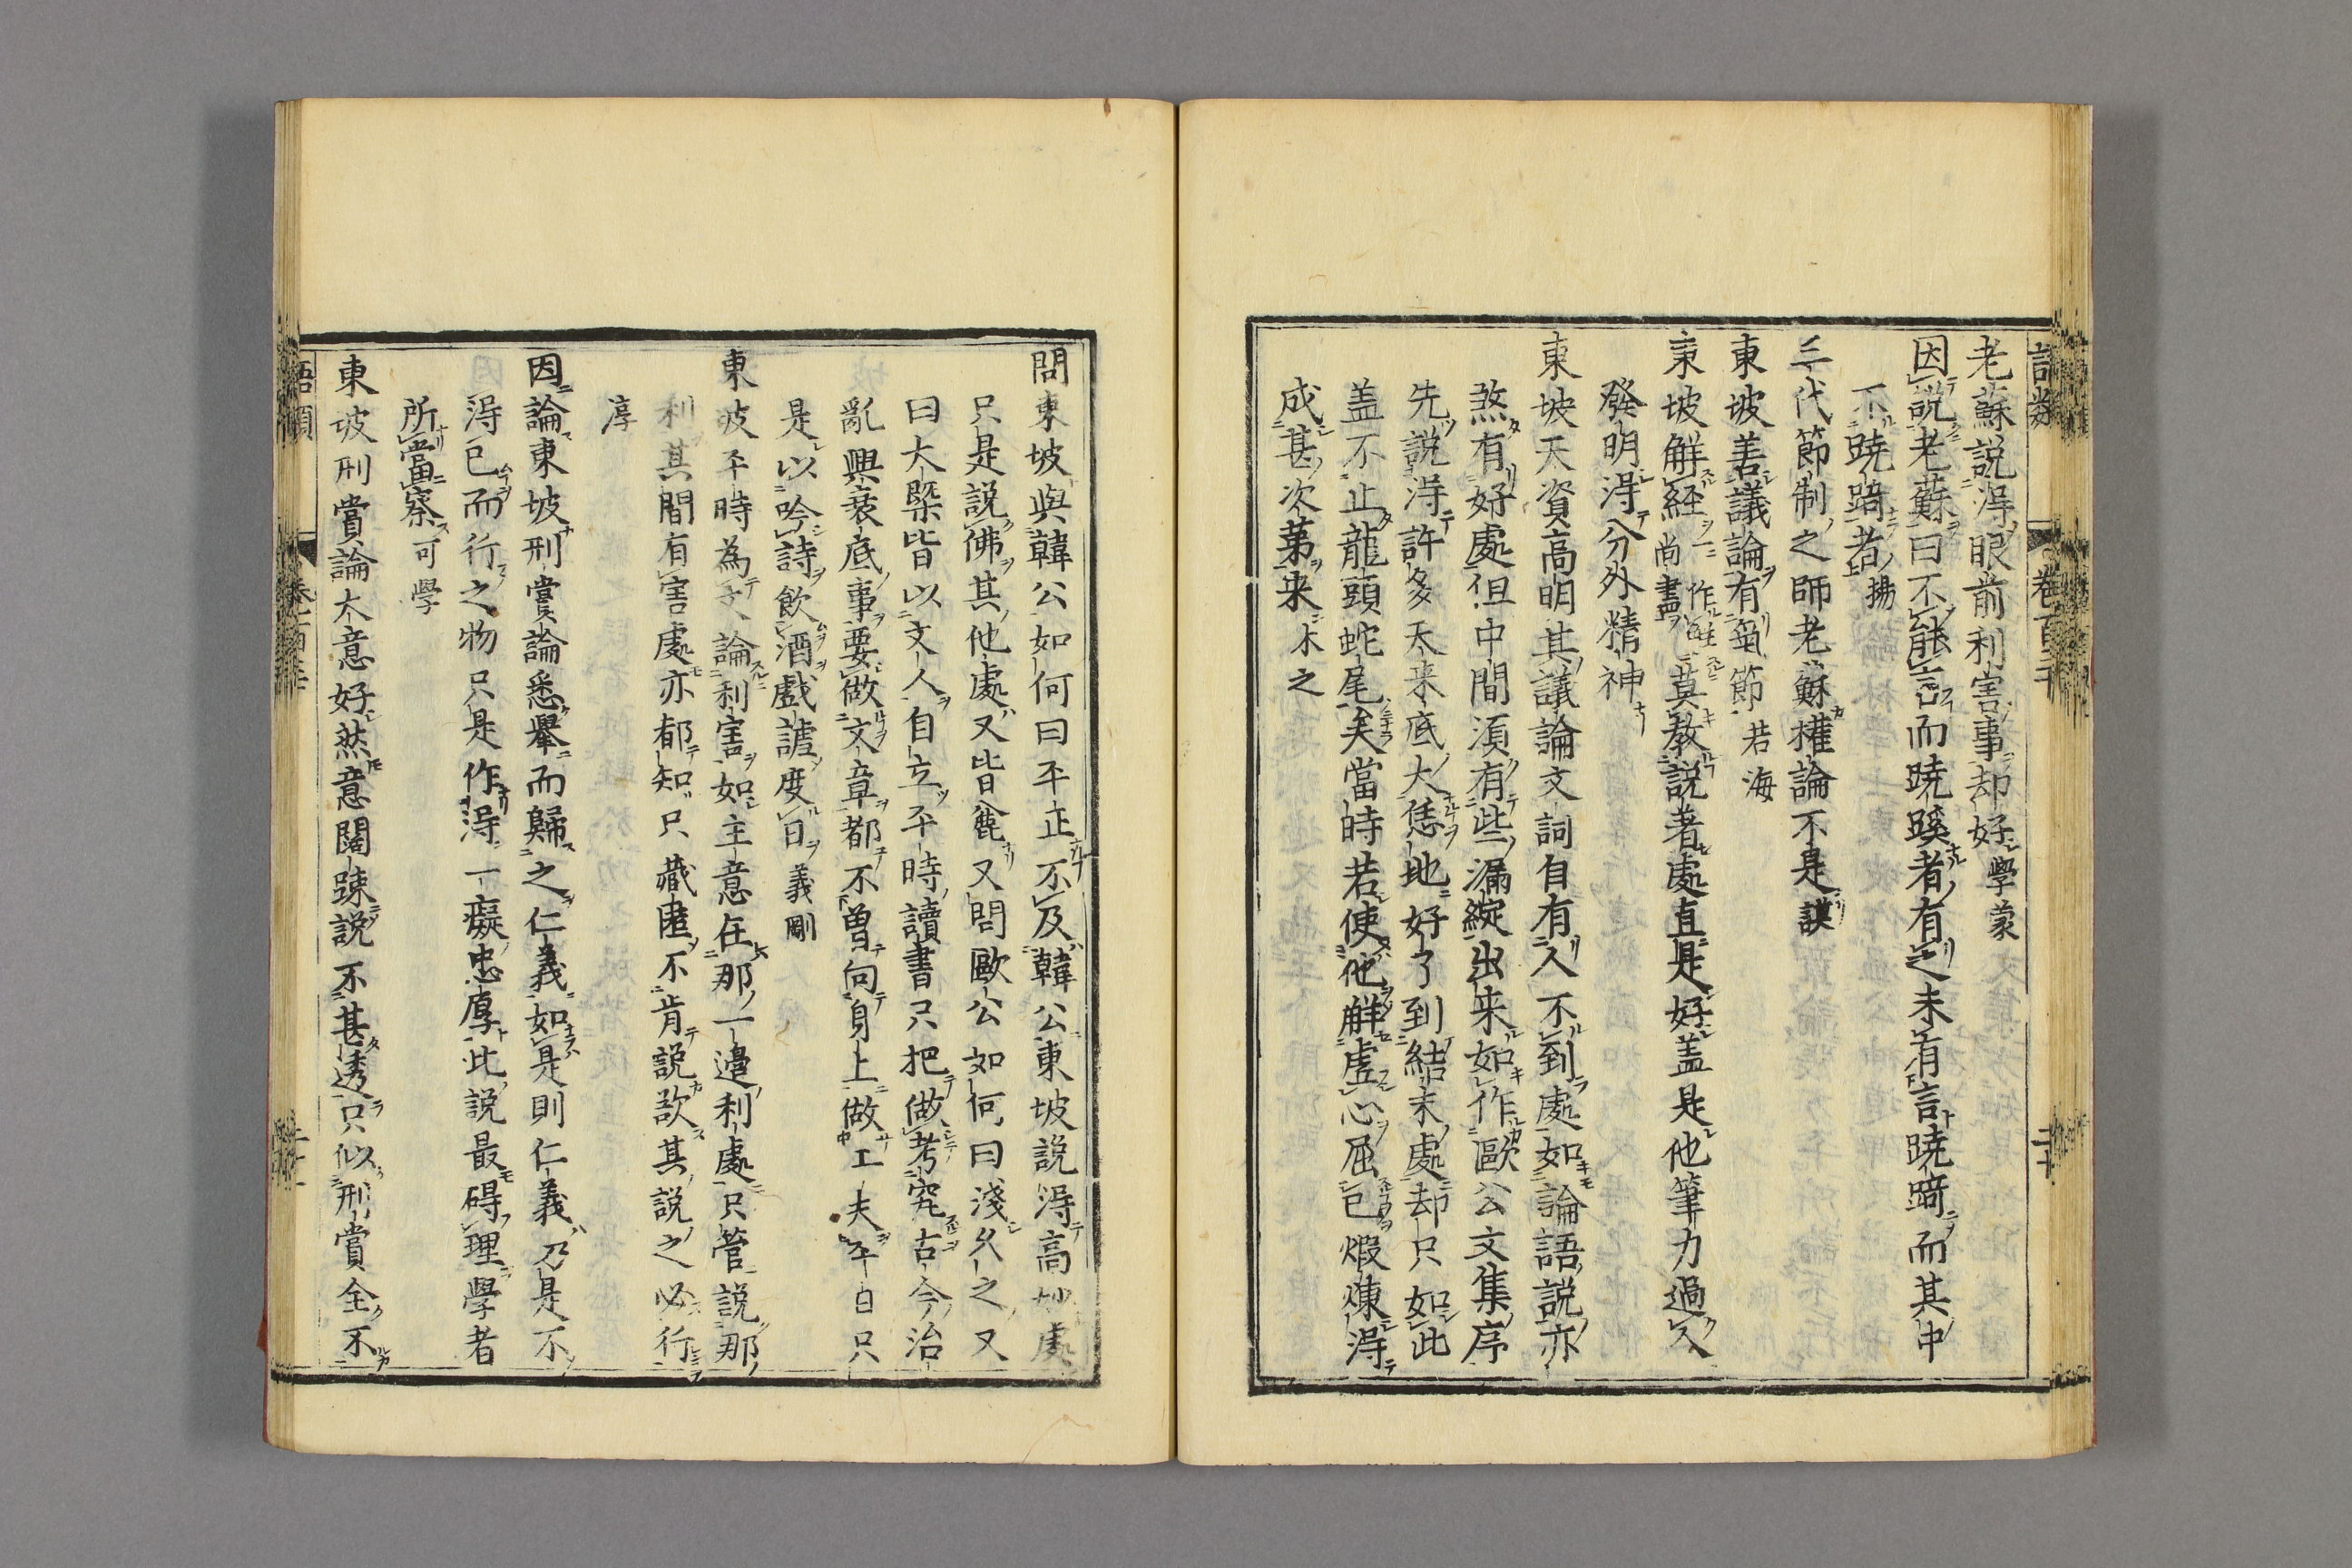 老蘇說得眼前利害事却好學蒙
因說老蘇曰不能言而蹺蹊者有之未有言蹺踦而其中
不蹺踦者揚
三代節制之師老蘇權論不是謨
東坡善議論有氣節若海
東坡解經一作解尚書莫教說著處直是好盖是他筆力過人
發明得分外精神
東坡天資高明其議論文詞自有人不到處如論語說亦
煞有好處但中間須有些漏綻出来如作歐公文集序
先說得許多天来底大恁地好了到結末處却只如此
盖不止龍頭蛇尾矣當時若使他解虛心屈已煆煉得
成甚次第来木之
問東坡與韓公如何曰平正不及韓公東坡說得高妙處
只是說佛其他處又皆麄又問歐公如何曰淺久之又
曰大槩皆以文人自立平時讀書只把做考究古今治
亂興衰底事要做文章都不曽向身上做工夫平日只
是以吟詩飲酒戲謔度日義剛
東坡平時為文論利害如主意在那一邉利處只管說那
利其間有害處亦都知只藏匿不肯說欲其說之必行
淳
因論東坡刑賞論悉舉而歸之仁義如是則仁義乃是不
得已而行之物只是作得一癡忠厚此說最碍理學者
所當察可學
東坡刑賞論大意好然意闊踈說不甚透只似刑賞全不
語類